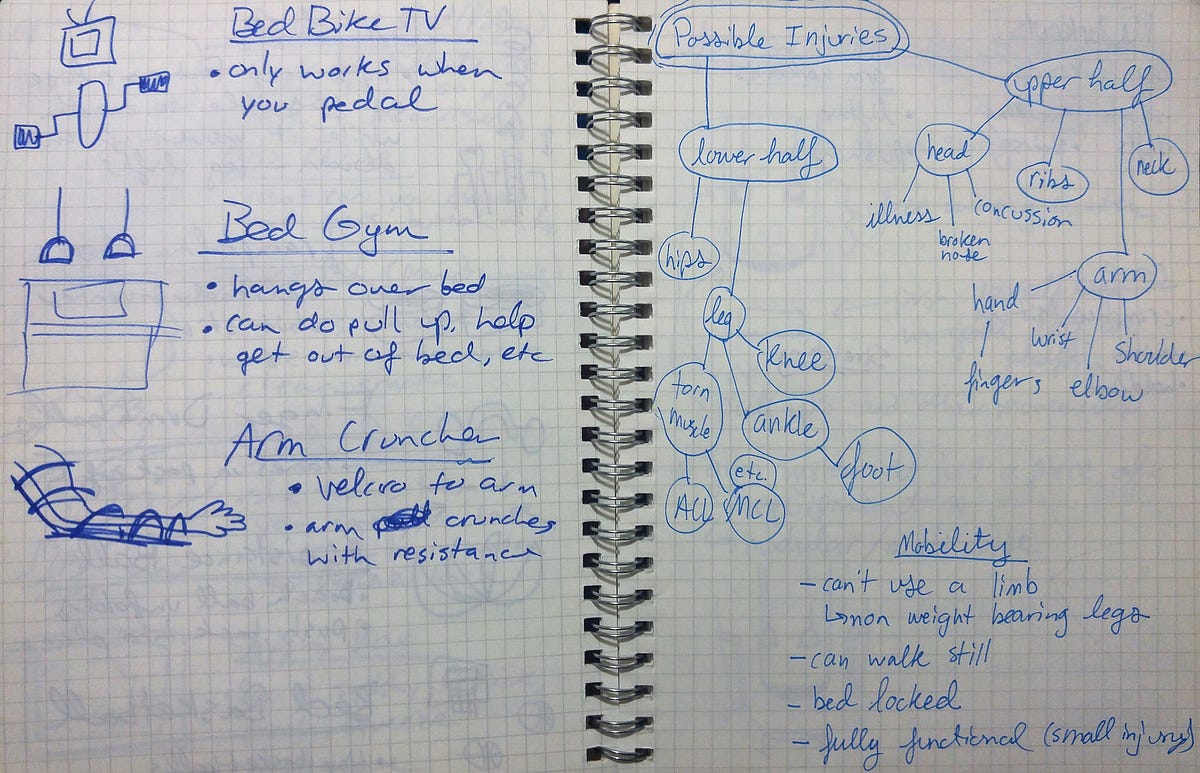 Bed Bike TV
• only works when
you pedal
Bed Gym
• hangs over bed
• can do pull up, help
get out of bed, etc
Arm Cruncher
• velcro to arm
• arm crunches
with resistance
Possible Injuries
upper half
lower half
head
ribs
neck
illness
concussion
broken
nose
hips
arm
hand
leg
wrist
shoulder
knee
fingers
elbow
torn
muscle
ankle
foot
etc.
ACL
MCL
Mobility
- can't use a limb
↳non weight bearing legs
- can walk still
- bed locked
- fully functional (small injury)